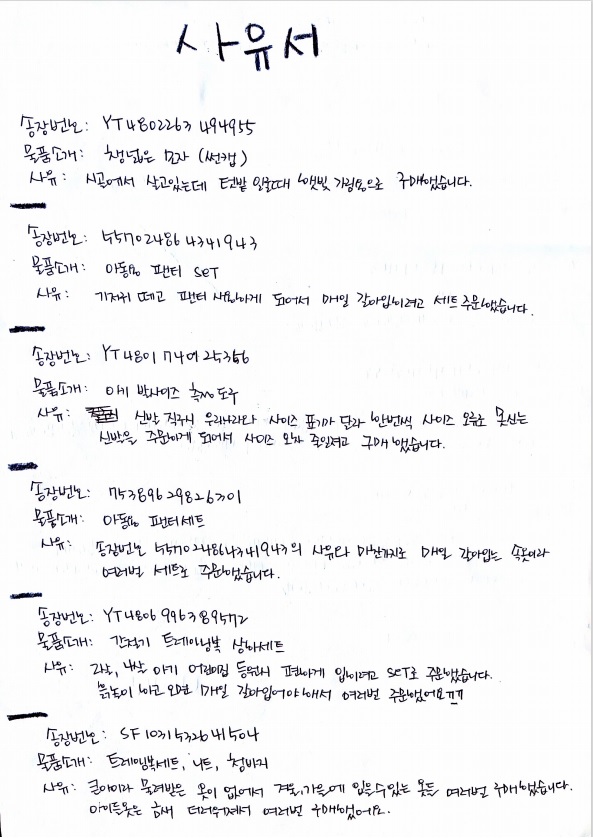 사유서
송장번호: YT4802263494955
물품소개: 챙넓은 모자 (썬캡)
사유: 시골에서 살고있는데 텃밭 일굴때 햇빛 가림용으로 구매했습니다.
송장번호: 557024864341943
물품소개: 아동용 팬티 SET
사유: 기저귀 떼고 팬티 사용하게 되어서 매일 갈아입히려고 세트 주문했습니다.
송장번호: YT4801740925366
물품소개: 아기 발사이즈 측정 도구
사유: 신발 직구시 우리나라와 사이즈 표기가 달라 한번씩 사이즈 오류로 못신는
신발을 주문하게 되어서 사이즈 오차 줄일려고 구매 했습니다.
송장번호: 75389629826301
물품소개: 아동용 팬티세트
사유: 송장번호 557024864341943의 사유와 마찬가지로 매일 갈아입는 속옷이라
여러번 세트로 주문했습니다.
송장번호: YT4806996389572
물품소개: 간절기 트레이닝복 상하세트
사유: 2살, 4살 아기 어린이집 등원시 편하게 입히려고 SET로 주문했습니다.
흙놀이 하고 오면 매일 갈아입어야해서 여러번 주문했어요ㅠㅠ
송장번호: SF1031532641504
물품소개: 트레이닝복세트, 니트, 청바지
사유: 큰아이라 물려받은 옷이 없어서 겨울,가을에 입을수있는 옷들 여러번 구매했습니다.
아이들옷은 금새 더러워져서 여러번 구매했어요.